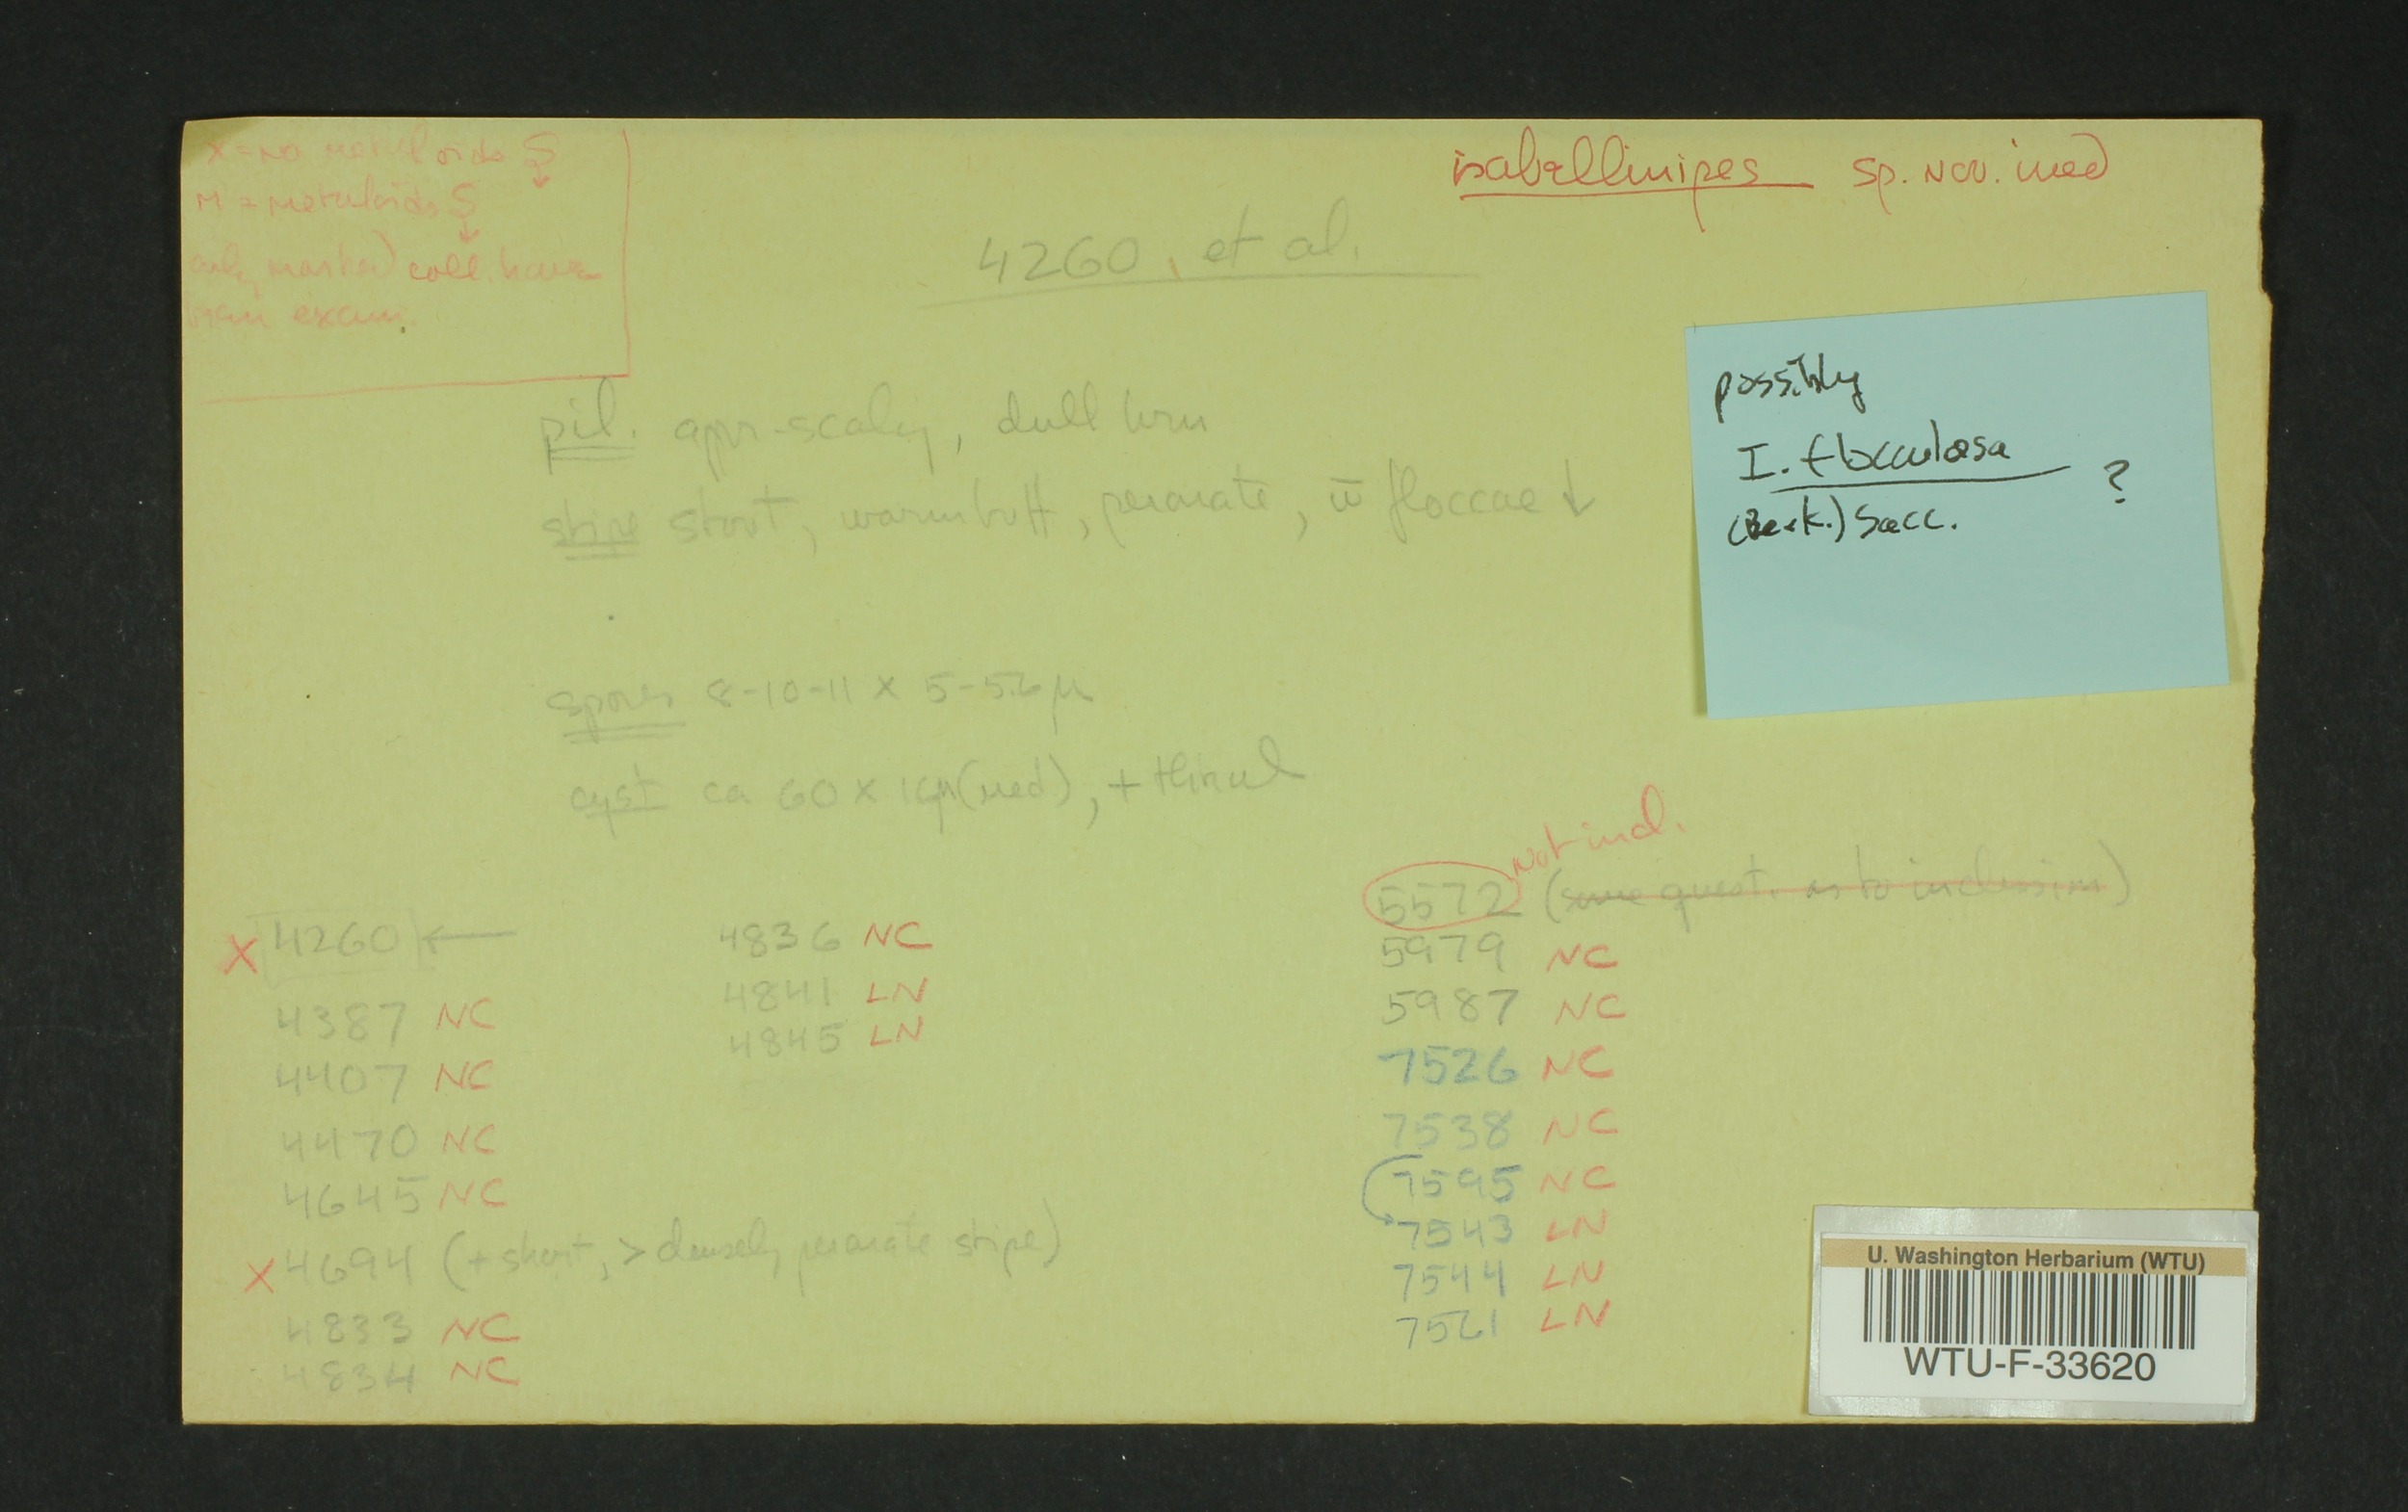 X = no metuloids
M = metuloids
only marked coll. have
been exam.
isabellinipes sp. nov. ined
4260, et al.
possibly
I. flocculosa
(Berk.) Sacc. ?
pil. appr-scaly, dull brn
stipe stout, warm buff, peronate, w̄ floccae ↓
spores 8-10-11 x 5-5.6 μ
cyst ca 60 x 16μ (med), + thinwl
X 4260 ←
4387 NC
4407 NC
4470 NC
4645 NC
X 4694 (+ short, > densely peronate stipe)
4833 NC
4834 NC
4836 NC
4841 LN
4845 LN
Not incl.
5572 (some quest. as to inclusion)
5979 NC
5987 NC
7526 NC
7538 NC
7595 NC
7543 LN
7544 LN
7561 LN
U. Washington Herbarium (WTU)
WTU-F-33620